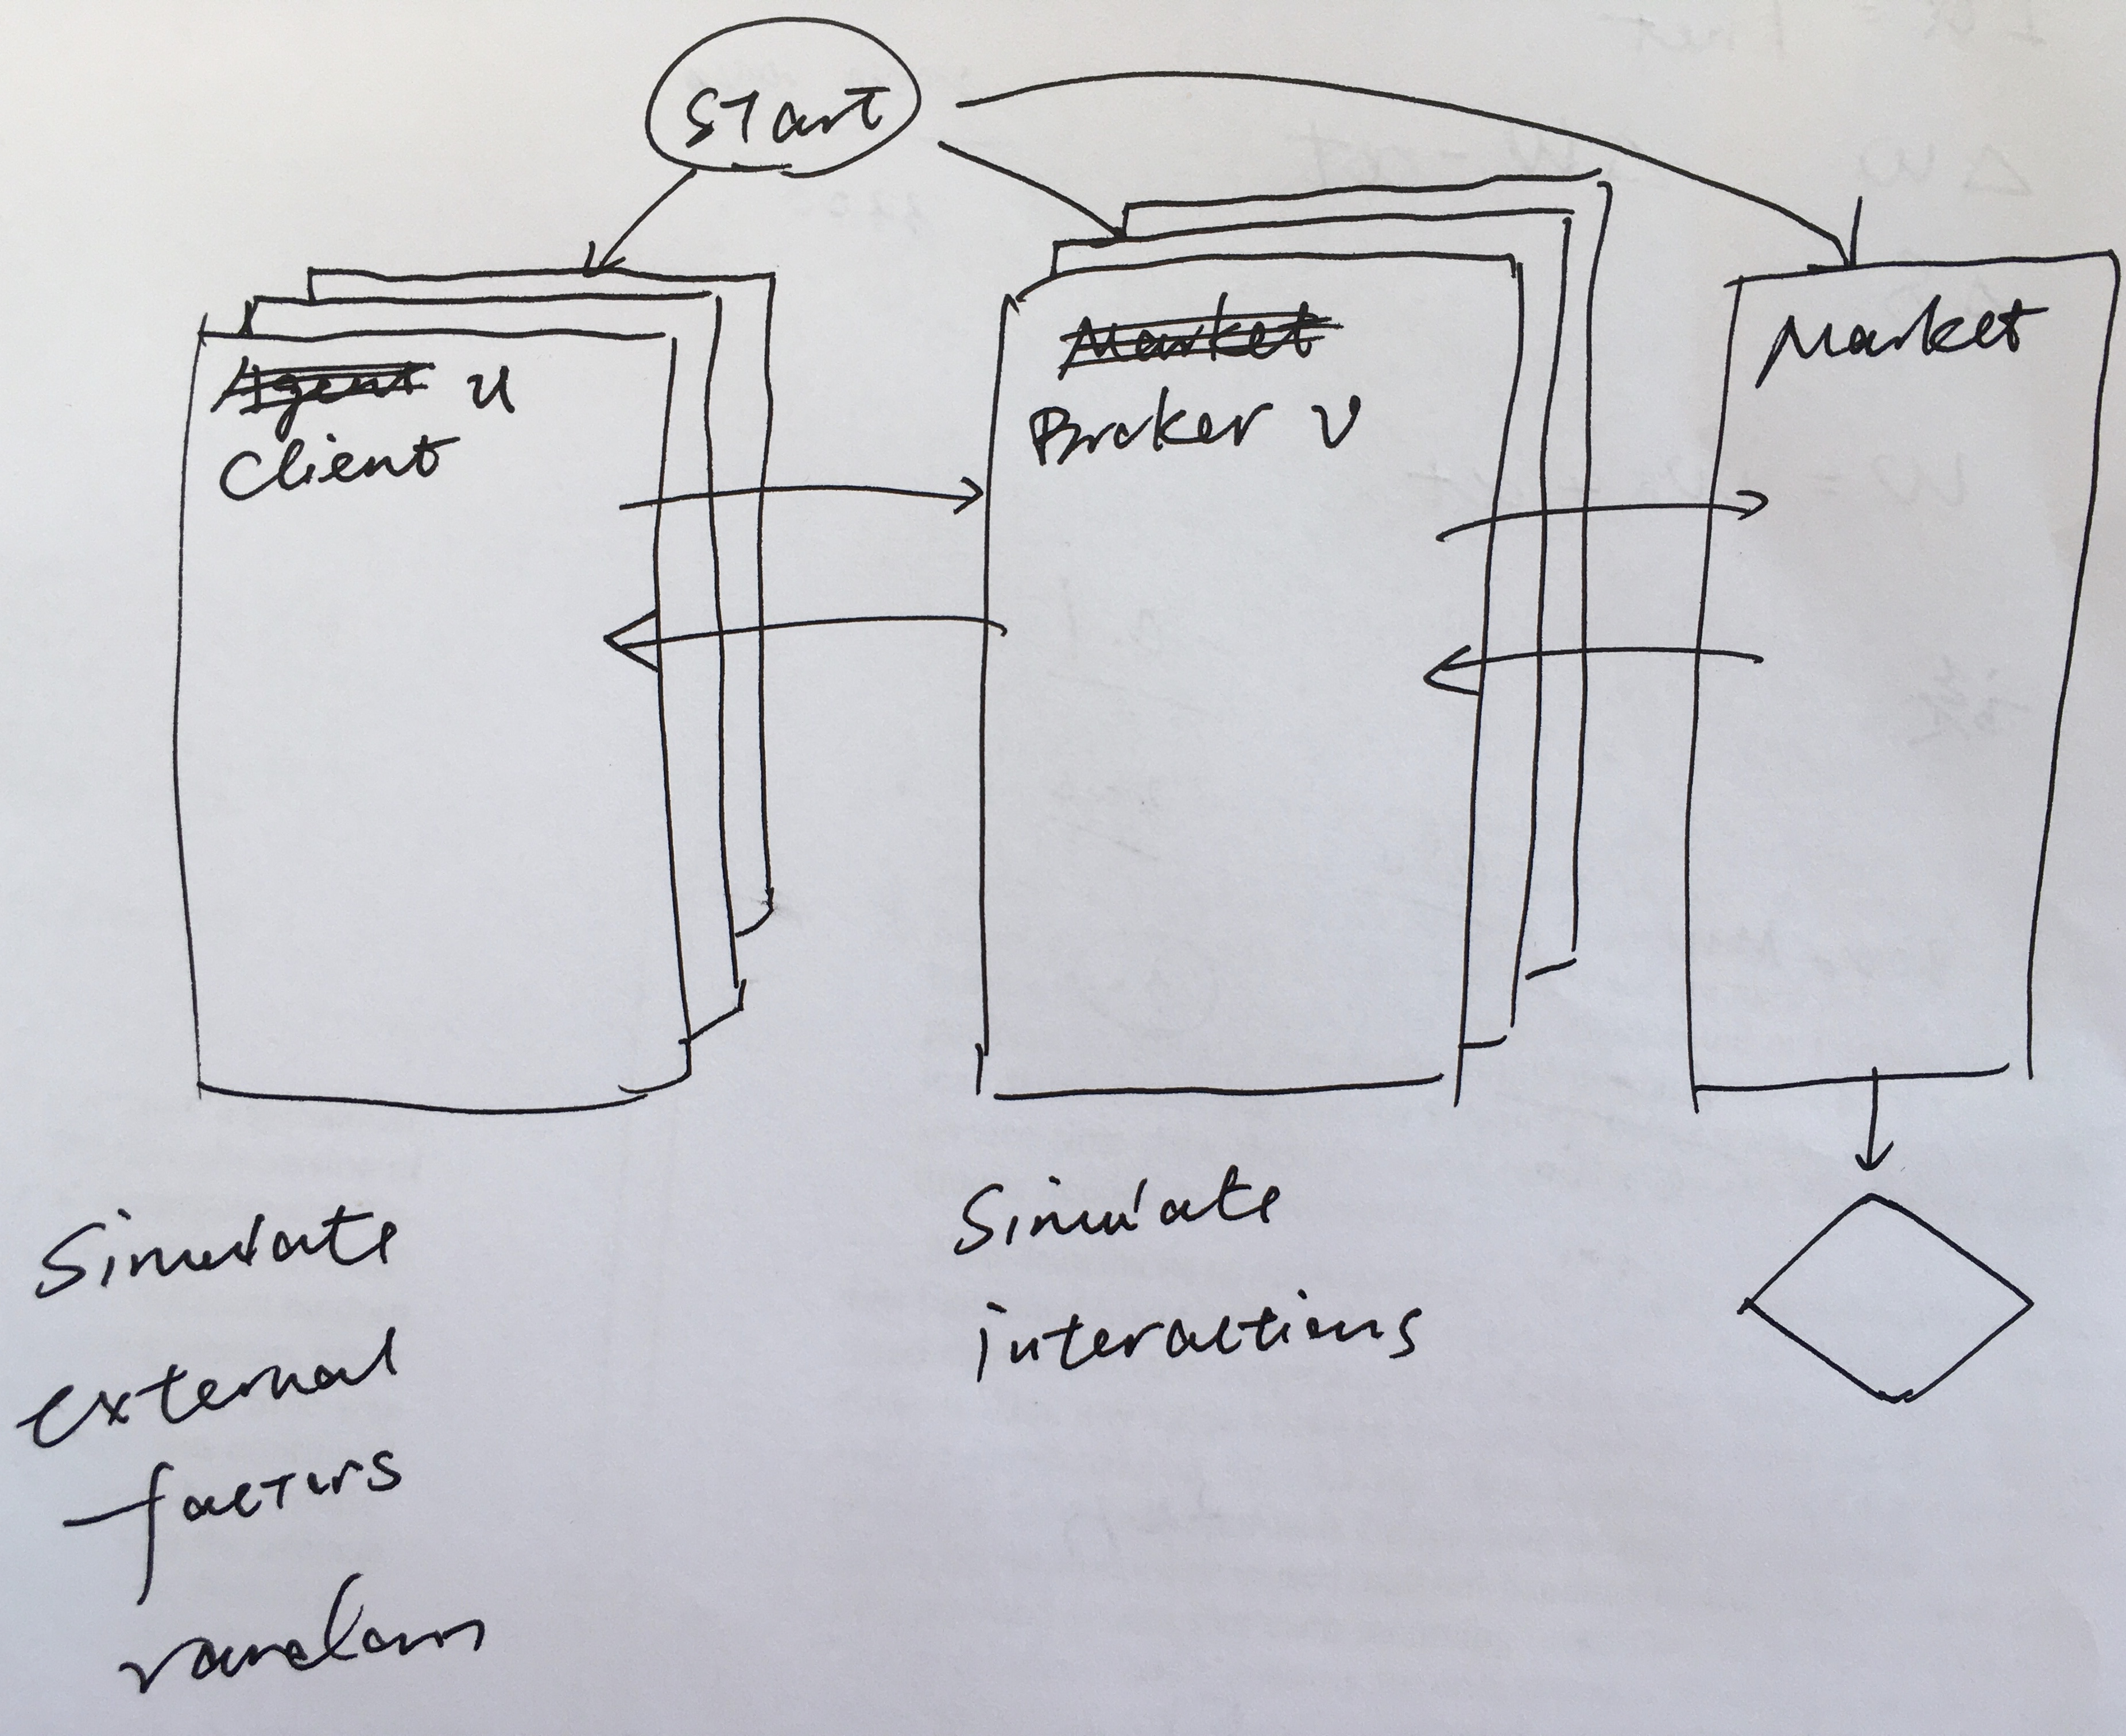 Start
Agent u
Client
Market
Broker v
Market
Simulate
external
factors
random
Simulate
interactions